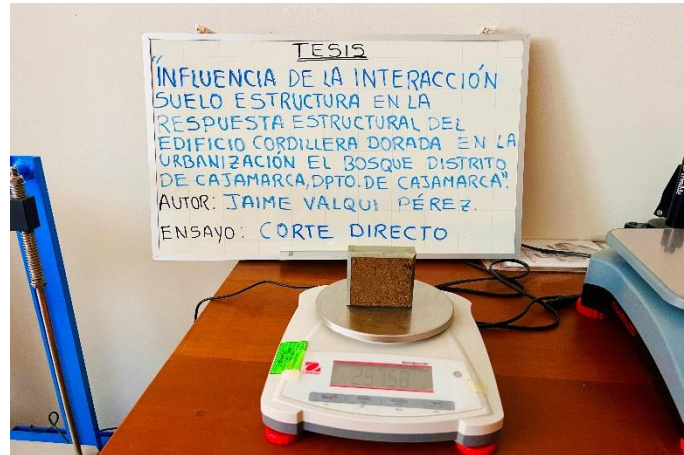 TESIS
"INFLUENCIA DE LA INTERACCIÓN
SUELO ESTRUCTURA EN LA
RESPUESTA ESTRUCTURAL DEL
EDIFICIO CORDILLERA DORADA EN LA
URBANIZACIÓN EL BOSQUE DISTRITO
DE CAJAMARCA, DPTO. DE CAJAMARCA".
AUTOR: JAIME VALQUI PÉREZ.
ENSAYO: CORTE DIRECTO